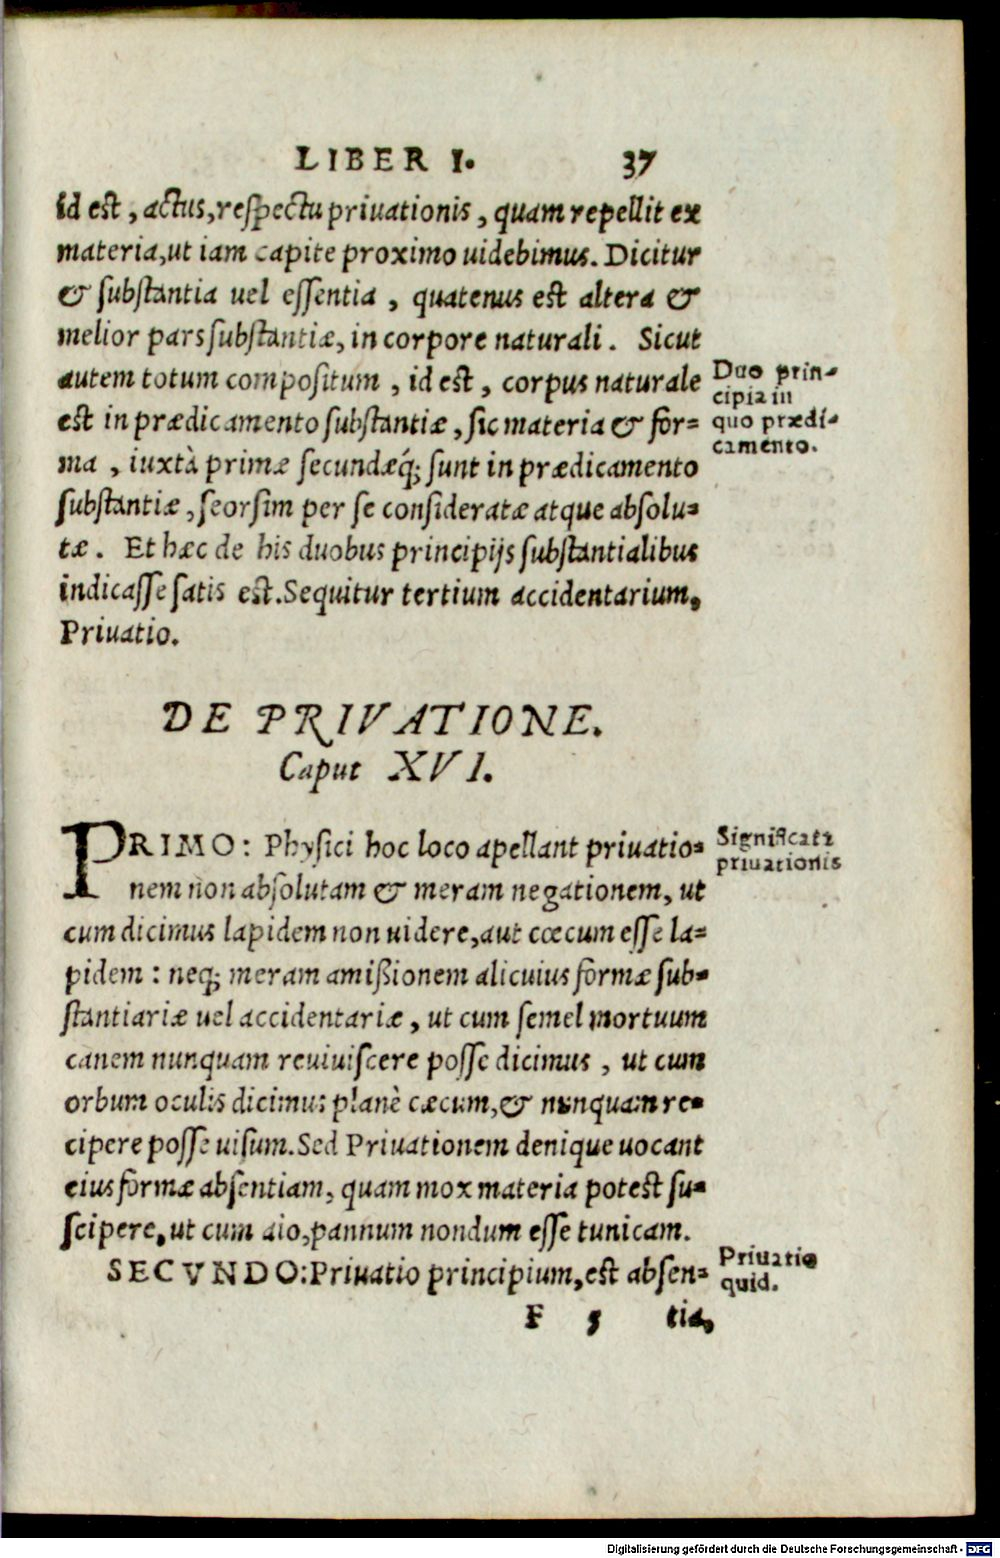 LIBER I. 37
id est, actus, respectu priuationis, quam repellit ex
materia, ut iam capite proximo uidebimus. Dicitur
& substantia uel essentia, quatenus est altera &
melior pars substantiæ, in corpore naturali. Sicut
autem totum compositum, id est, corpus naturale
est in prædicamento substantiæ, sic materia & for-
ma, iuxtà primæ secundæq́; sunt in prædicamento
substantiæ, seorsim per se consideratæ atque absolu-
tæ. Et hæc de his duobus principijs substantialibus
indicasse satis est. Sequitur tertium accidentarium,
Priuatio.
Duo prin-
cipia in
quo prædi-
camento.
DE PRIVATIONE.
Caput XVI.
PRIMO: Physici hoc loco apellant priuatio-
nem non absolutam & meram negationem, ut
cum dicimus lapidem non uidere, aut cœcum esse la-
pidem: neq; meram amißionem alicuius formæ sub-
stantiariæ uel accidentariæ, ut cum semel mortuum
canem nunquam reuiuiscere posse dicimus, ut cum
orbum oculis dicimus planè cæcum, & nunquam re-
cipere posse uisum. Sed Priuationem denique uocant
eius formæ absentiam, quam mox materia potest su-
scipere, ut cum aio, pannum nondum esse tunicam.
Significata
priuationis
SECVNDO: Priuatio principium, est absen-
Priuatio
quid.
F 5 tia,
Digitalisierung gefördert durch die Deutsche Forschungsgemeinschaft - DFG